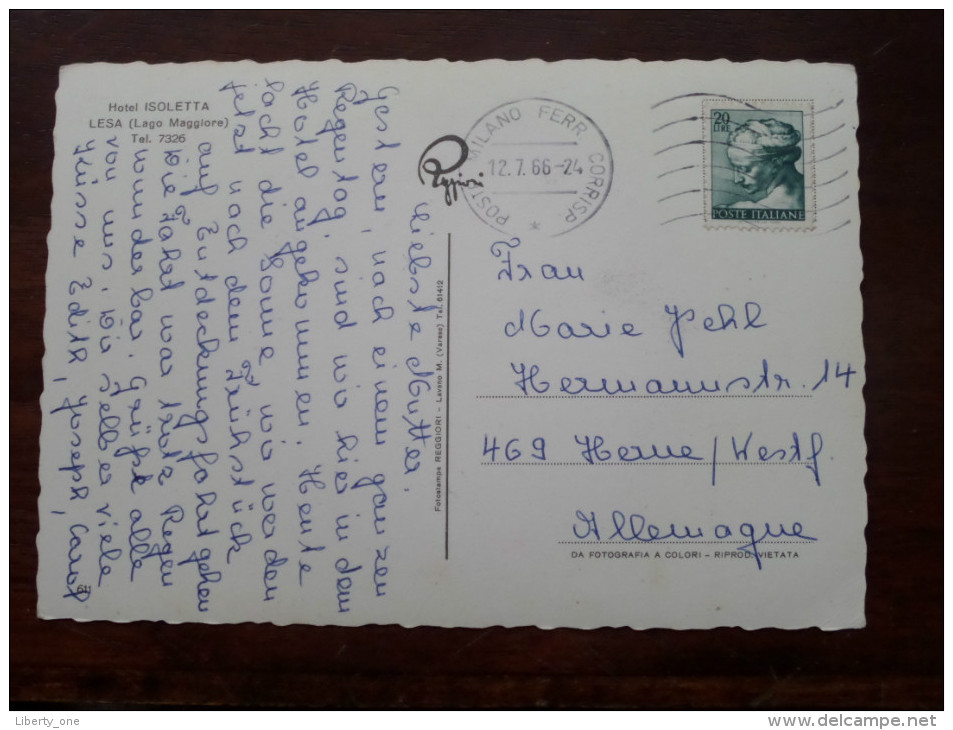 Hotel ISOLETTA
LESA (Lago Maggiore)
Tel. 7326
Liebste Mutter,
Gestern, nach einem ganzen
Regentag, sind wir hier in dem
Hotel angekommen. Heute
lacht die Sonne wir werden
jetzt nach dem Frühstück
auf Entdeckungsfahrt gehen
Die Fahrt war trotz Regen
wunderbar. Grüße alle
von uns, Dir selber viele
Grüsse Edith, Joseph, Carol
611
Reggiori
Fotostampa REGGIORI - Laveno M. (Varese) Tel. 61412
POSTE MILANO FERR. CORRISP.
12.7.66-24
20
LIRE
POSTE ITALIANE
Frau
Marie Jehl
Hermannstr. 14
469 Herne/Westf.
Allemagne
DA FOTOGRAFIA A COLORI - RIPROD. VIETATA
Liberty_one
www.delcampe.net